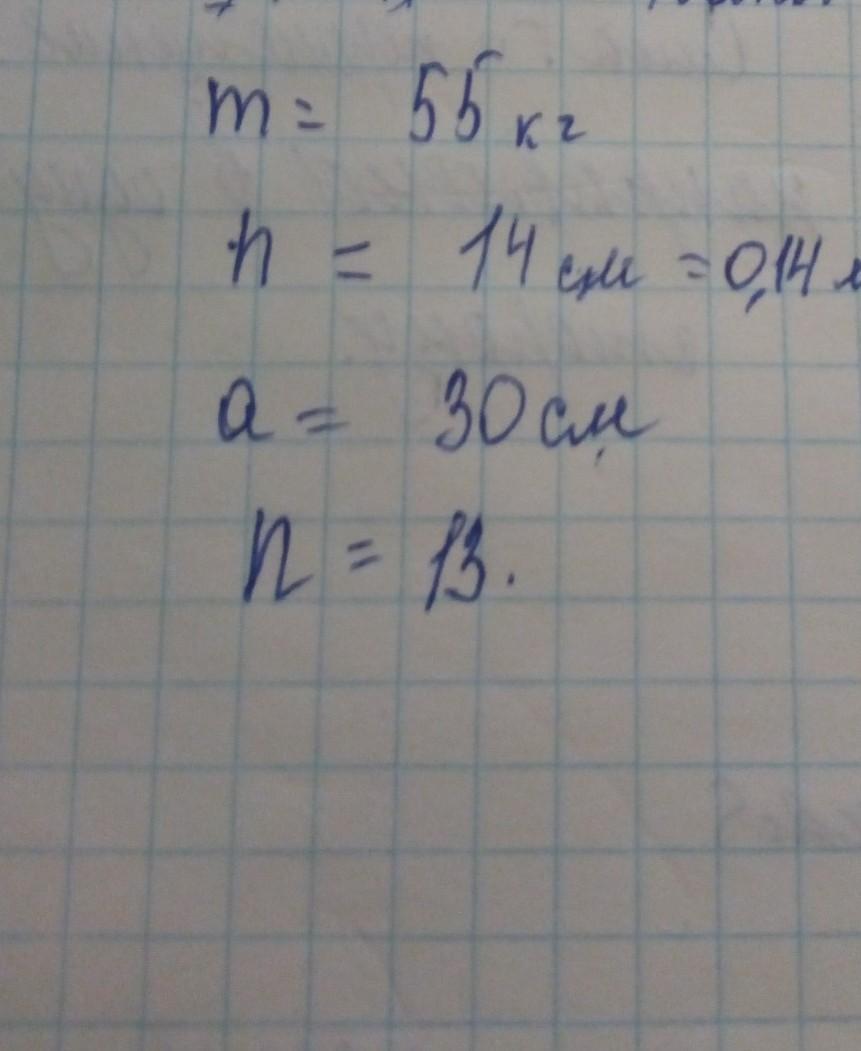 m = 55 кг
h = 14 см = 0,14 м
a = 30 см
n = 13.